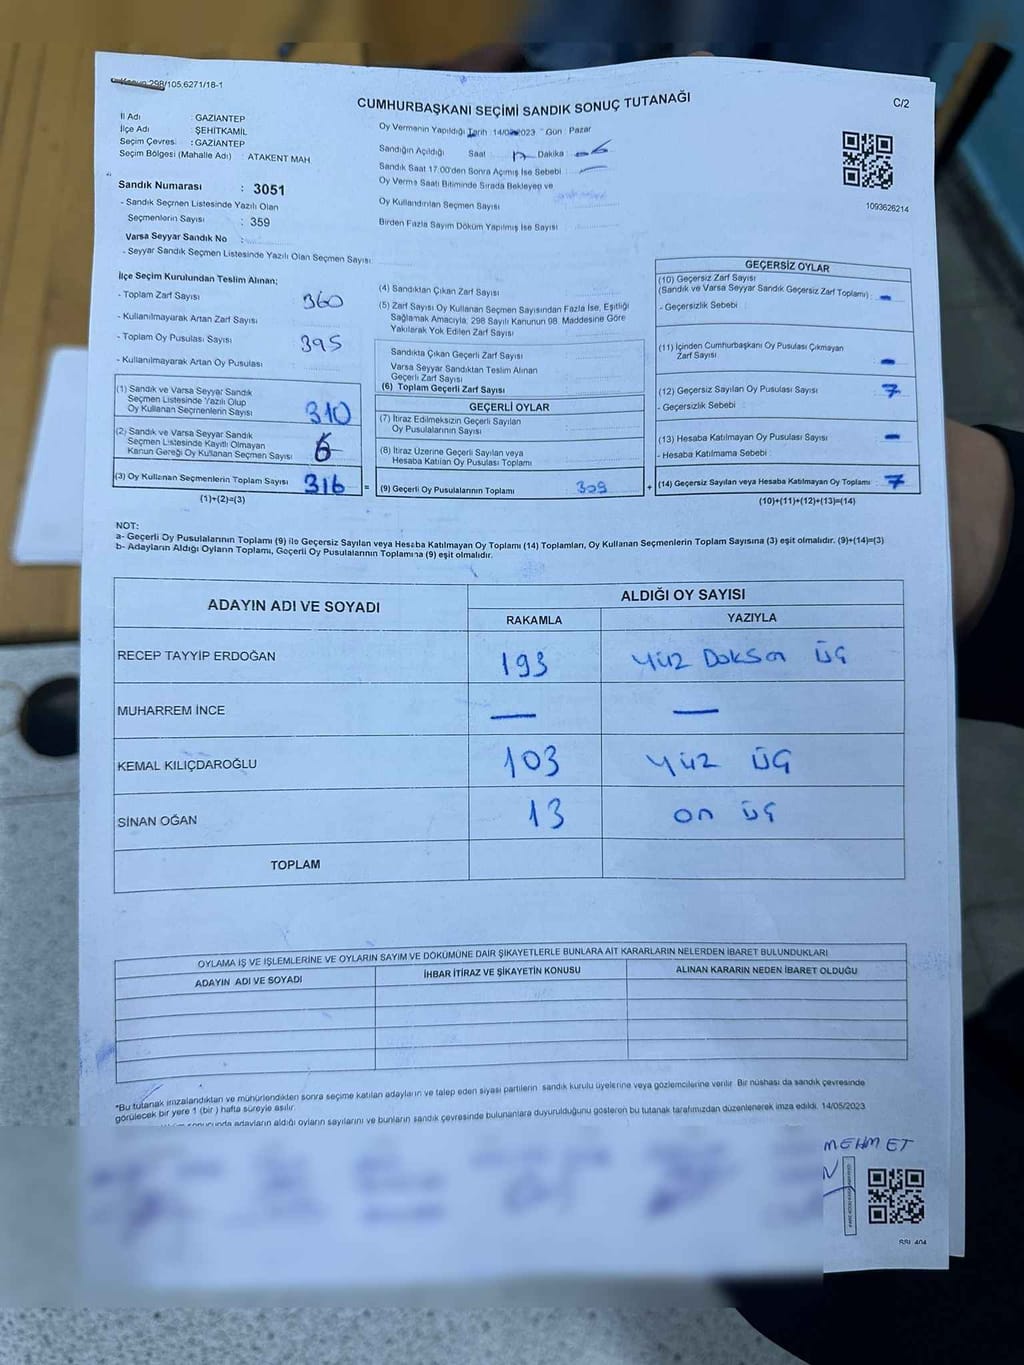 298/105,6271/18-1
CUMHURBAŞKANI SEÇİMİ SANDIK SONUÇ TUTANAĞI
C/2
İl Adı : GAZİANTEP
İlçe Adı : ŞEHİTKAMİL
Seçim Çevresi : GAZİANTEP
Seçim Bölgesi (Mahalle Adı) : ATAKENT MAH
Sandık Numarası : 3051
- Sandık Seçmen Listesinde Yazılı Olan
Seçmenlerin Sayısı : 359
Varsa Seyyar Sandık No :
- Seyyar Sandık Seçmen Listesinde Yazılı Olan Seçmen Sayısı:
Oy Vermenin Yapıldığı Tarih : 14/05/2023 Gün : Pazar
Sandığın Açıldığı Saat : 17 Dakika : 06
Sandık Saat 17.00'den Sonra Açımış İse Sebebi :
Oy Verme Saati Bitiminde Sırada Bekleyen ve
Oy Kullandırılan Seçmen Sayısı :
Birden Fazla Sayım Döküm Yapılmış İse Sayısı :
1093626214
İlçe Seçim Kurulundan Teslim Alınan;
- Toplam Zarf Sayısı 360
- Kullanılmayarak Artan Zarf Sayısı
- Toplam Oy Pusulası Sayısı 395
- Kullanılmayarak Artan Oy Pusulası
(1) Sandık ve Varsa Seyyar Sandık
Seçmen Listesinde Yazılı Olup
Oy Kullanan Seçmenlerin Sayısı 310
(2) Sandık ve Varsa Seyyar Sandık
Seçmen Listesinde Kayıtlı Olmayan
Kanun Gereği Oy Kullanan Seçmen Sayısı 6
(3) Oy Kullanan Seçmenlerin Toplam Sayısı 316 =
(1)+(2)=(3)
(4) Sandıktan Çıkan Zarf Sayısı
(5) Zarf Sayısı Oy Kullanan Seçmen Sayısından Fazla İse, Eşitliği
Sağlamak Amacıyla, 298 Sayılı Kanunun 98. Maddesine Göre
Yakılarak Yok Edilen Zarf Sayısı
Sandıkta Çıkan Geçerli Zarf Sayısı
Varsa Seyyar Sandıktan Teslim Alınan
Geçerli Zarf Sayısı
(6) Toplam Geçerli Zarf Sayısı
GEÇERLİ OYLAR
(7) İtiraz Edilmeksizin Geçerli Sayılan
Oy Pusulalarının Sayısı
(8) İtiraz Üzerine Geçerli Sayılan veya
Hesaba Katılan Oy Pusulası Toplamı
(9) Geçerli Oy Pusulalarının Toplamı 309 +
GEÇERSİZ OYLAR
(10) Geçersiz Zarf Sayısı
(Sandık ve Varsa Seyyar Sandık Geçersiz Zarf Toplamı) : -
- Geçersizlik Sebebi :
(11) İçinden Cumhurbaşkanı Oy Pusulası Çıkmayan
Zarf Sayısı -
(12) Geçersiz Sayılan Oy Pusulası Sayısı 7
- Geçersizlik Sebebi
(13) Hesaba Katılmayan Oy Pusulası Sayısı -
- Hesaba Katılmama Sebebi :
(14) Geçersiz Sayılan veya Hesaba Katılmayan Oy Toplamı : 7
(10)+(11)+(12)+(13)=(14)
NOT:
a- Geçerli Oy Pusulalarının Toplamı (9) ile Geçersiz Sayılan veya Hesaba Katılmayan Oy Toplamı (14) Toplamları, Oy Kullanan Seçmenlerin Toplam Sayısına (3) eşit olmalıdır. (9)+(14)=(3)
b- Adayların Aldığı Oyların Toplamı, Geçerli Oy Pusulalarının Toplamına (9) eşit olmalıdır.
ADAYIN ADI VE SOYADI
ALDIĞI OY SAYISI
RAKAMLA YAZIYLA
RECEP TAYYİP ERDOĞAN 193 Yüz Doksan Üç
MUHARREM İNCE — —
KEMAL KILIÇDAROĞLU 103 Yüz Üç
SİNAN OĞAN 13 on üç
TOPLAM
OYLAMA İŞ VE İŞLEMLERİNE VE OYLARIN SAYIM VE DÖKÜMÜNE DAİR ŞİKAYETLERLE BUNLARA AİT KARARLARIN NELERDEN İBARET BULUNDUKLARI
ADAYIN ADI VE SOYADI İHBAR İTİRAZ VE ŞİKAYETİN KONUSU ALINAN KARARIN NEDEN İBARET OLDUĞU
*Bu tutanak imzalandıktan ve mühürlendikten sonra seçime katılan adayların ve talep eden siyasi partilerin sandık kurulu üyelerine veya gözlemcilerine verilir. Bir nüshası da sandık çevresinde
görülecek bir yere 1 (bir) hafta süreyle asılır.
sonucunda adayların aldığı oyların sayılarını ve bunların sandık çevresinde bulunanlara duyurulduğunu gösteren bu tutanak tarafımızdan düzenlenerek imza edildi. 14/05/2023
MEHMET